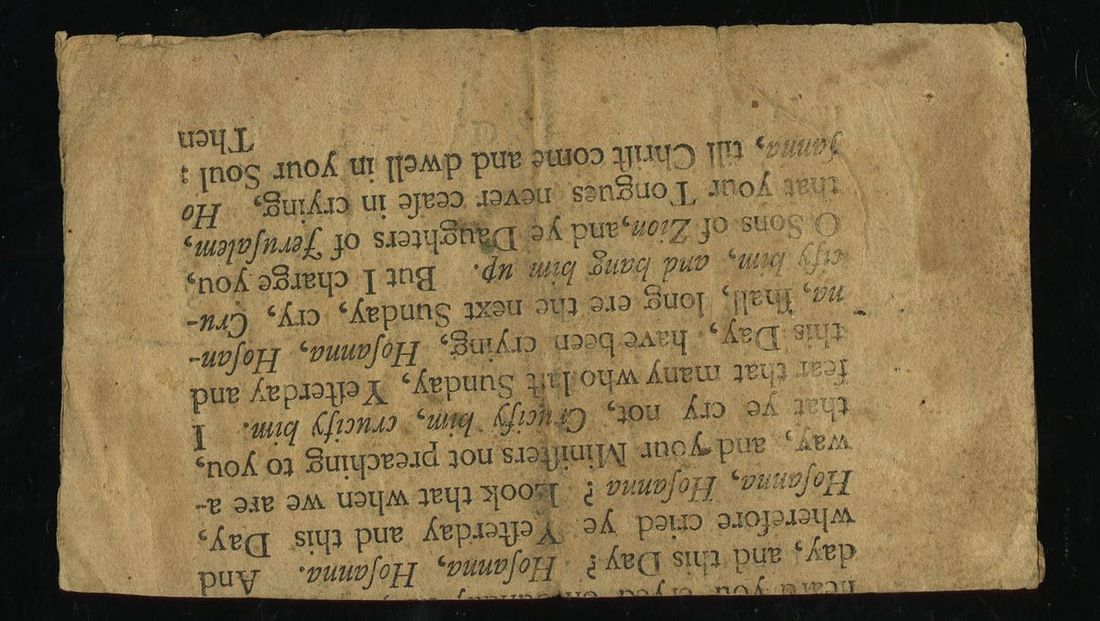 heard you cryed on
day, and this Day? Hoſanna, Hoſanna. And
wherefore cried ye Yeſterday and this Day,
Hoſanna, Hoſanna? Look that when we are a-
way, and your Miniſters not preaching to you,
that ye cry not, Crucify him, crucify him. I
fear that many who laſt Sunday, Yeſterday and
this Day, have been crying, Hoſanna, Hoſan-
na, ſhall, long ere the next Sunday, cry, Cru-
cify him, and hang him up. But I charge you,
O Sons of Zion, and ye Daughters of Jeruſalem,
that your Tongues never ceaſe in crying, Ho
ſanna, till Chriſt come and dwell in your Soul:
Then